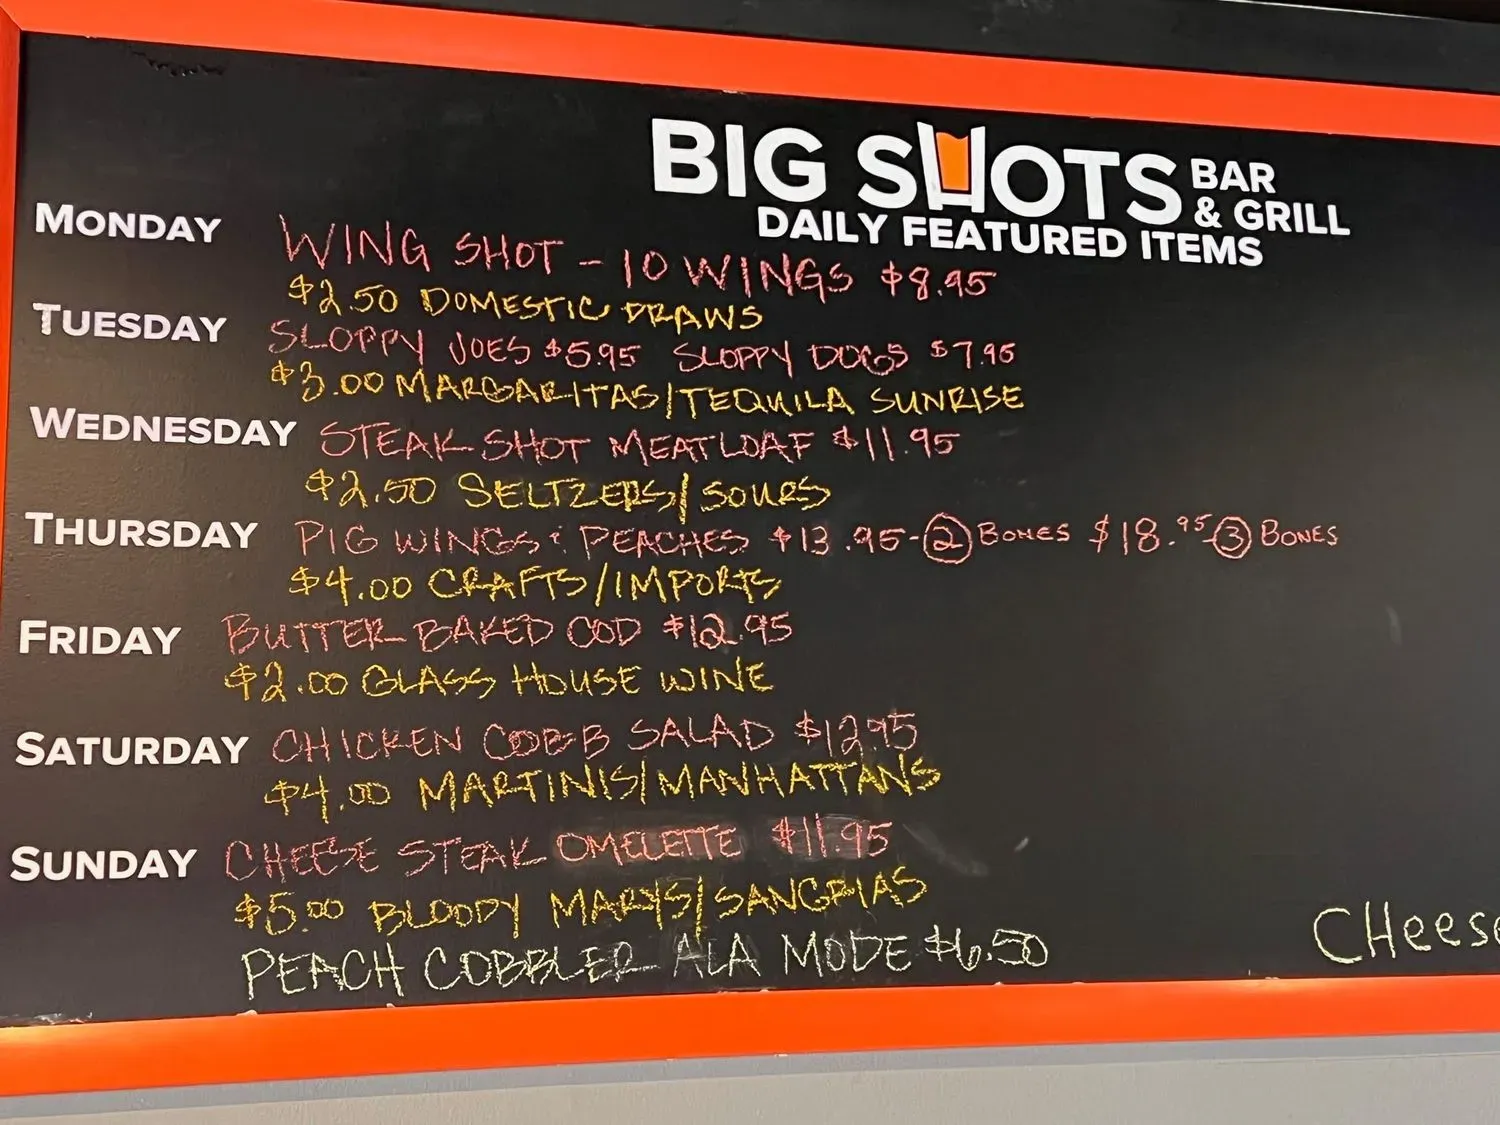 BIG SHOTS BAR & GRILL
DAILY FEATURED ITEMS
MONDAY WING SHOT - 10 WINGS $8.95
$2.50 DOMESTIC DRAWS
TUESDAY SLOPPY JOES $5.95 SLOPPY DOGS $7.95
$3.00 MARGARITAS/TEQUILA SUNRISE
WEDNESDAY STEAK SHOT MEATLOAF $11.95
$2.50 SELTZERS/SOURS
THURSDAY PIG WINGS & PEACHES $13.95-2 BONES $18.95-3 BONES
$4.00 CRAFTS/IMPORTS
FRIDAY BUTTER BAKED COD $12.95
$2.00 GLASS HOUSE WINE
SATURDAY CHICKEN COBB SALAD $12.95
$4.00 MARTINIS/MANHATTANS
SUNDAY CHEESE STEAK OMELETTE $11.95
$5.00 BLOODY MARYS/SANGRIAS
PEACH COBBLER ALA MODE $6.50
CHeese